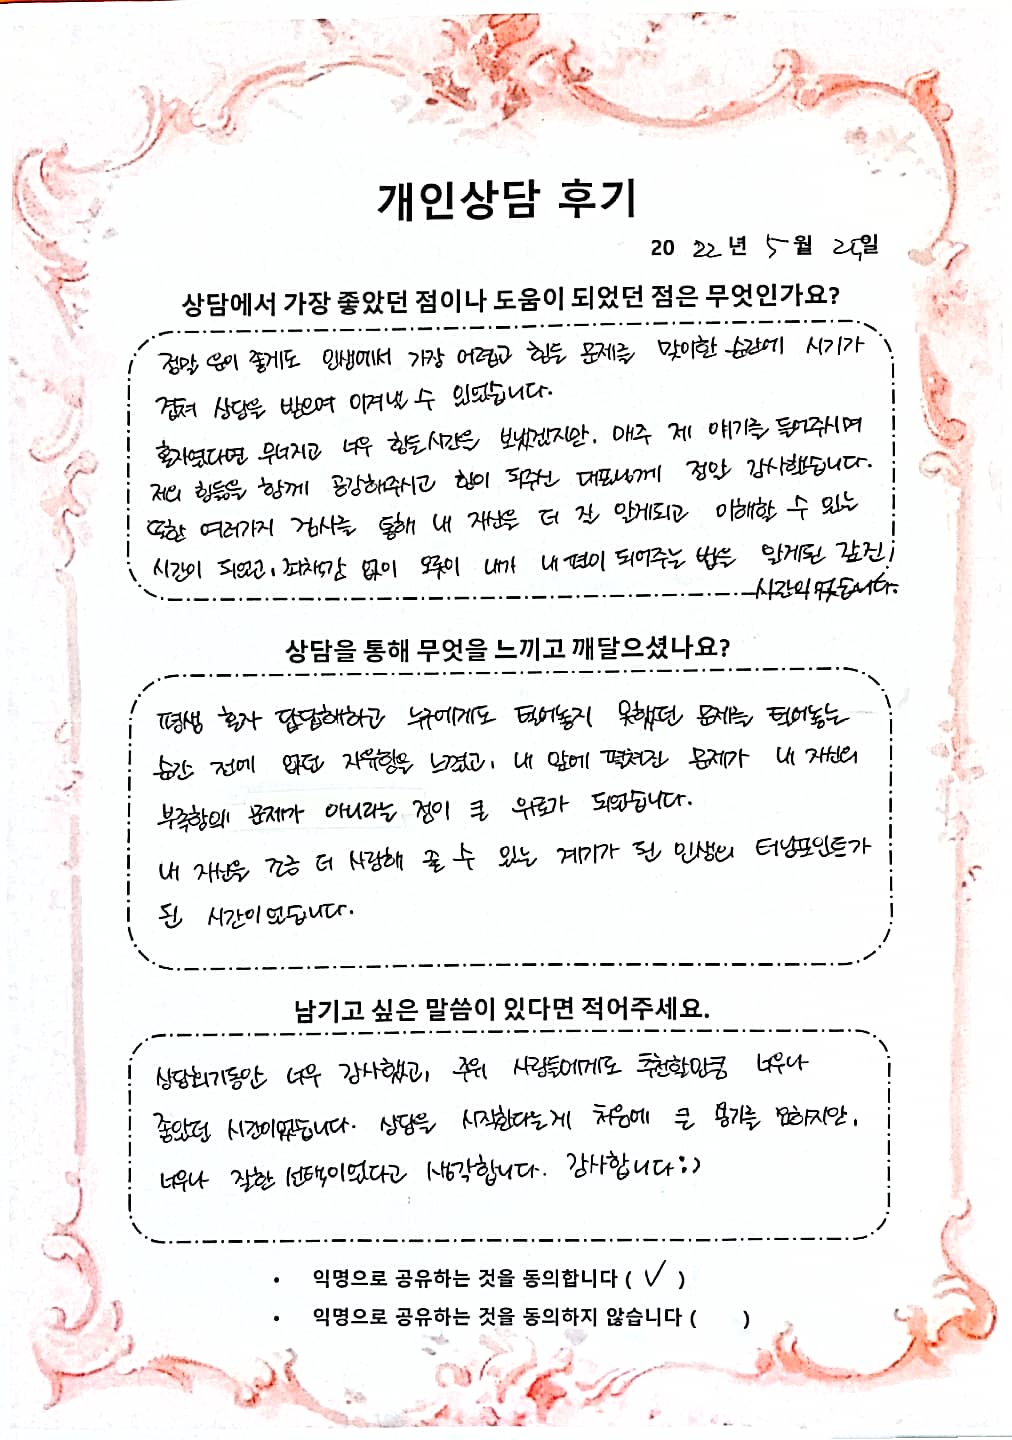 개인상담 후기
20 22 년 5 월 25일
상담에서 가장 좋았던 점이나 도움이 되었던 점은 무엇인가요?
정말 운이 좋게도 인생에서 가장 어렵고 힘든 문제를 맞이한 순간에 시기가
겹쳐 상담을 받으며 이겨낼 수 있었습니다.
혼자였다면 무너지고 너무 힘든시간을 보냈겠지만, 매주 제 얘기를 들어주시며
저의 힘듦을 함께 공감해주시고 힘이 되주신 대표님께 정말 감사했습니다.
또한 여러가지 검사를 통해 내 자신을 더 잘 알게되고 이해할 수 있는
시간이 되었고, 죄책감 없이 오롯이 내가 내 편이 되어주는 법을 알게된 값진
시간이였습니다.
상담을 통해 무엇을 느끼고 깨달으셨나요?
평생 혼자 답답해하고 누구에게도 털어놓지 못했던 문제를 털어놓는
순간 전에 없던 자유함을 느꼈고, 내 앞에 펼쳐진 문제가 내 자신의
부족함의 문제가 아니라는 점이 큰 위로가 되었습니다.
내 자신을 조금 더 사랑해 줄 수 있는 계기가 된 인생의 터닝포인트가
된 시간이었습니다.
남기고 싶은 말씀이 있다면 적어주세요.
상담회기동안 너무 감사했고, 주위 사람들에게도 추천할만큼 너무나
좋았던 시간이였습니다. 상담을 시작한다는게 처음에 큰 용기를 요하지만,
너무나 잘한 선택이었다고 생각합니다. 감사합니다:)
• 익명으로 공유하는 것을 동의합니다 ( ✓ )
• 익명으로 공유하는 것을 동의하지 않습니다 ( )